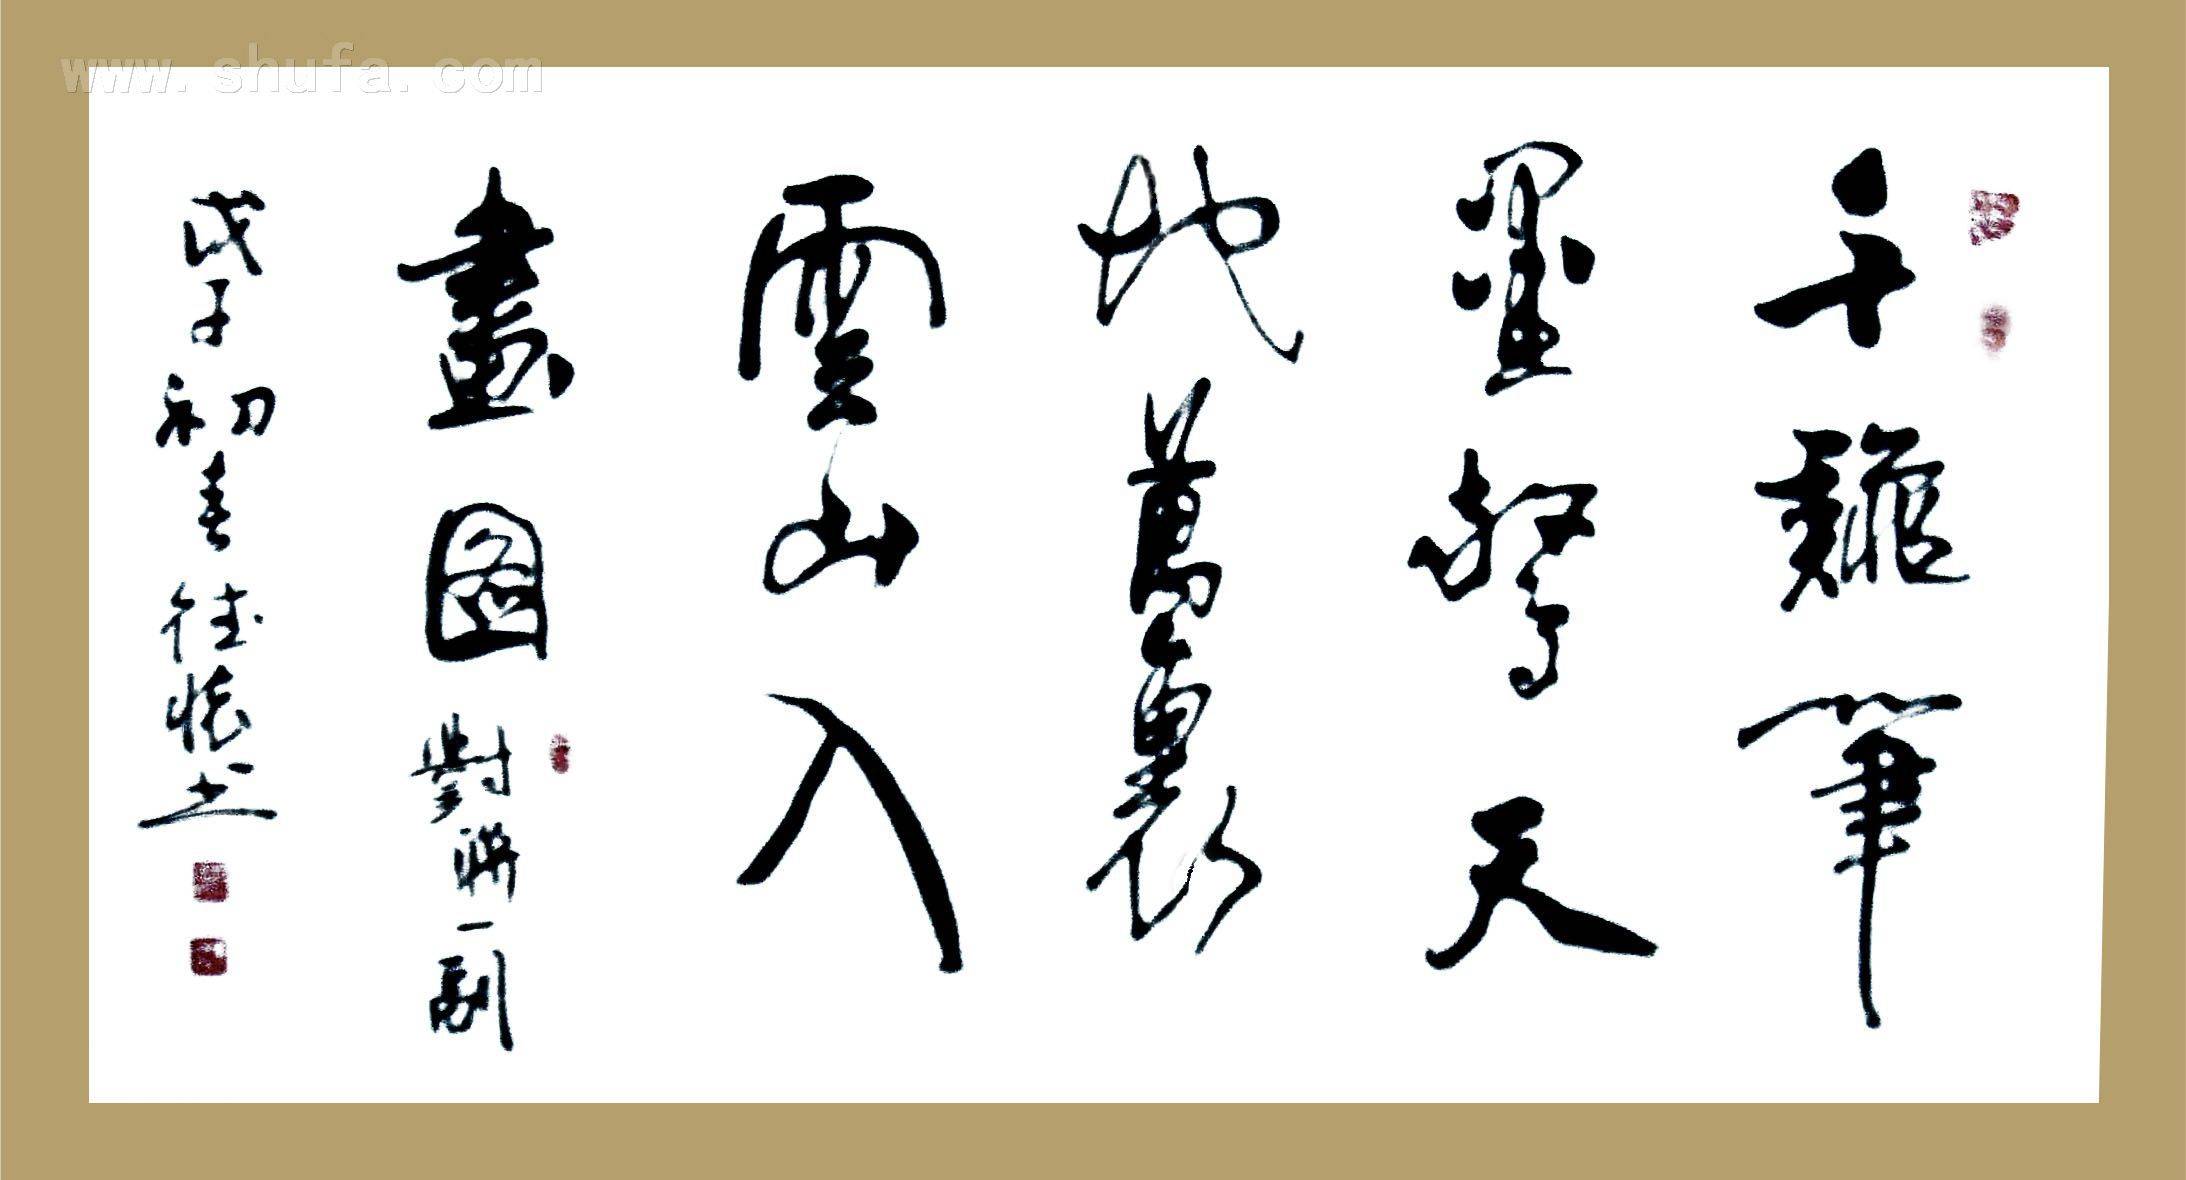 www.shufa.com
千龝筆
墨驚天
地萬裏
雲山入
畫圖 對聯一副
戊子初春德懷书